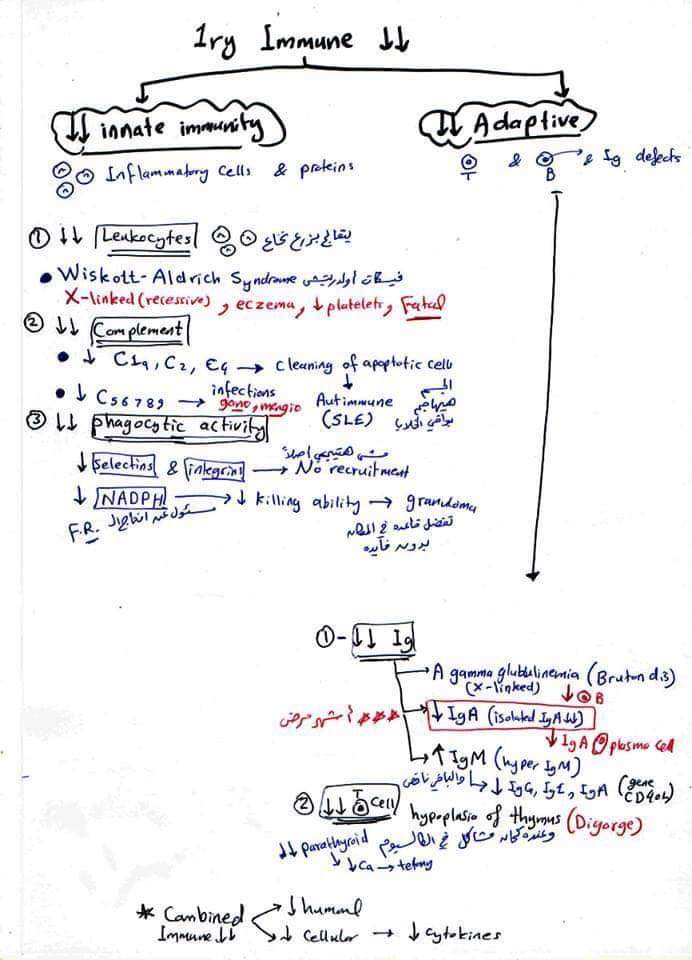 1ry Immune ↓↓
↓↓ innate immunity
Inflammatory cells & proteins
① ↓↓ Leukocytes بزرع نخاع
• Wiskott-Aldrich Syndrome
X-linked (recessive), eczema, ↓ platelets, Fatal
② ↓↓ Complement
• ↓ C1q, C2, C4 → Cleaning of apoptotic cell
↓ Autimmune (SLE)
الجسم
هيهاجم
بواقي الخلايا
• ↓ C56789 → infections
gono, mengio
③ ↓↓ phagocytic activity
↓ Selectins & integrins → No recruitment
مش هتيجي اصلاً
↓ NADPH → ↓ killing ability → granuloma
F.R. مسئول عن انتاج ال
تفضل قاعده في المكان
بدون فايده
↓↓ Adaptive
T & B & Ig defects
①- ↓↓ Ig
A gamma globulinemia (Bruton dis)
(X-linked) ↓ B
أشهر مرض *** ↓ IgA (isolated IgA ↓↓)
↓ IgA plasma cell
↑ IgM (hyper IgM)
والباقي ناقص ↓ IgG, IgE, IgA (gene CD40L)
② ↓↓ T cell
hypoplasia of thymus (Digorge)
↓↓ parathyroid وعنده كمان مشاكل في الكالسيوم
↓ ↓Ca → tetany
* Combined Immune ↓↓
↓ humral
↓ Cellular → ↓ cytokines